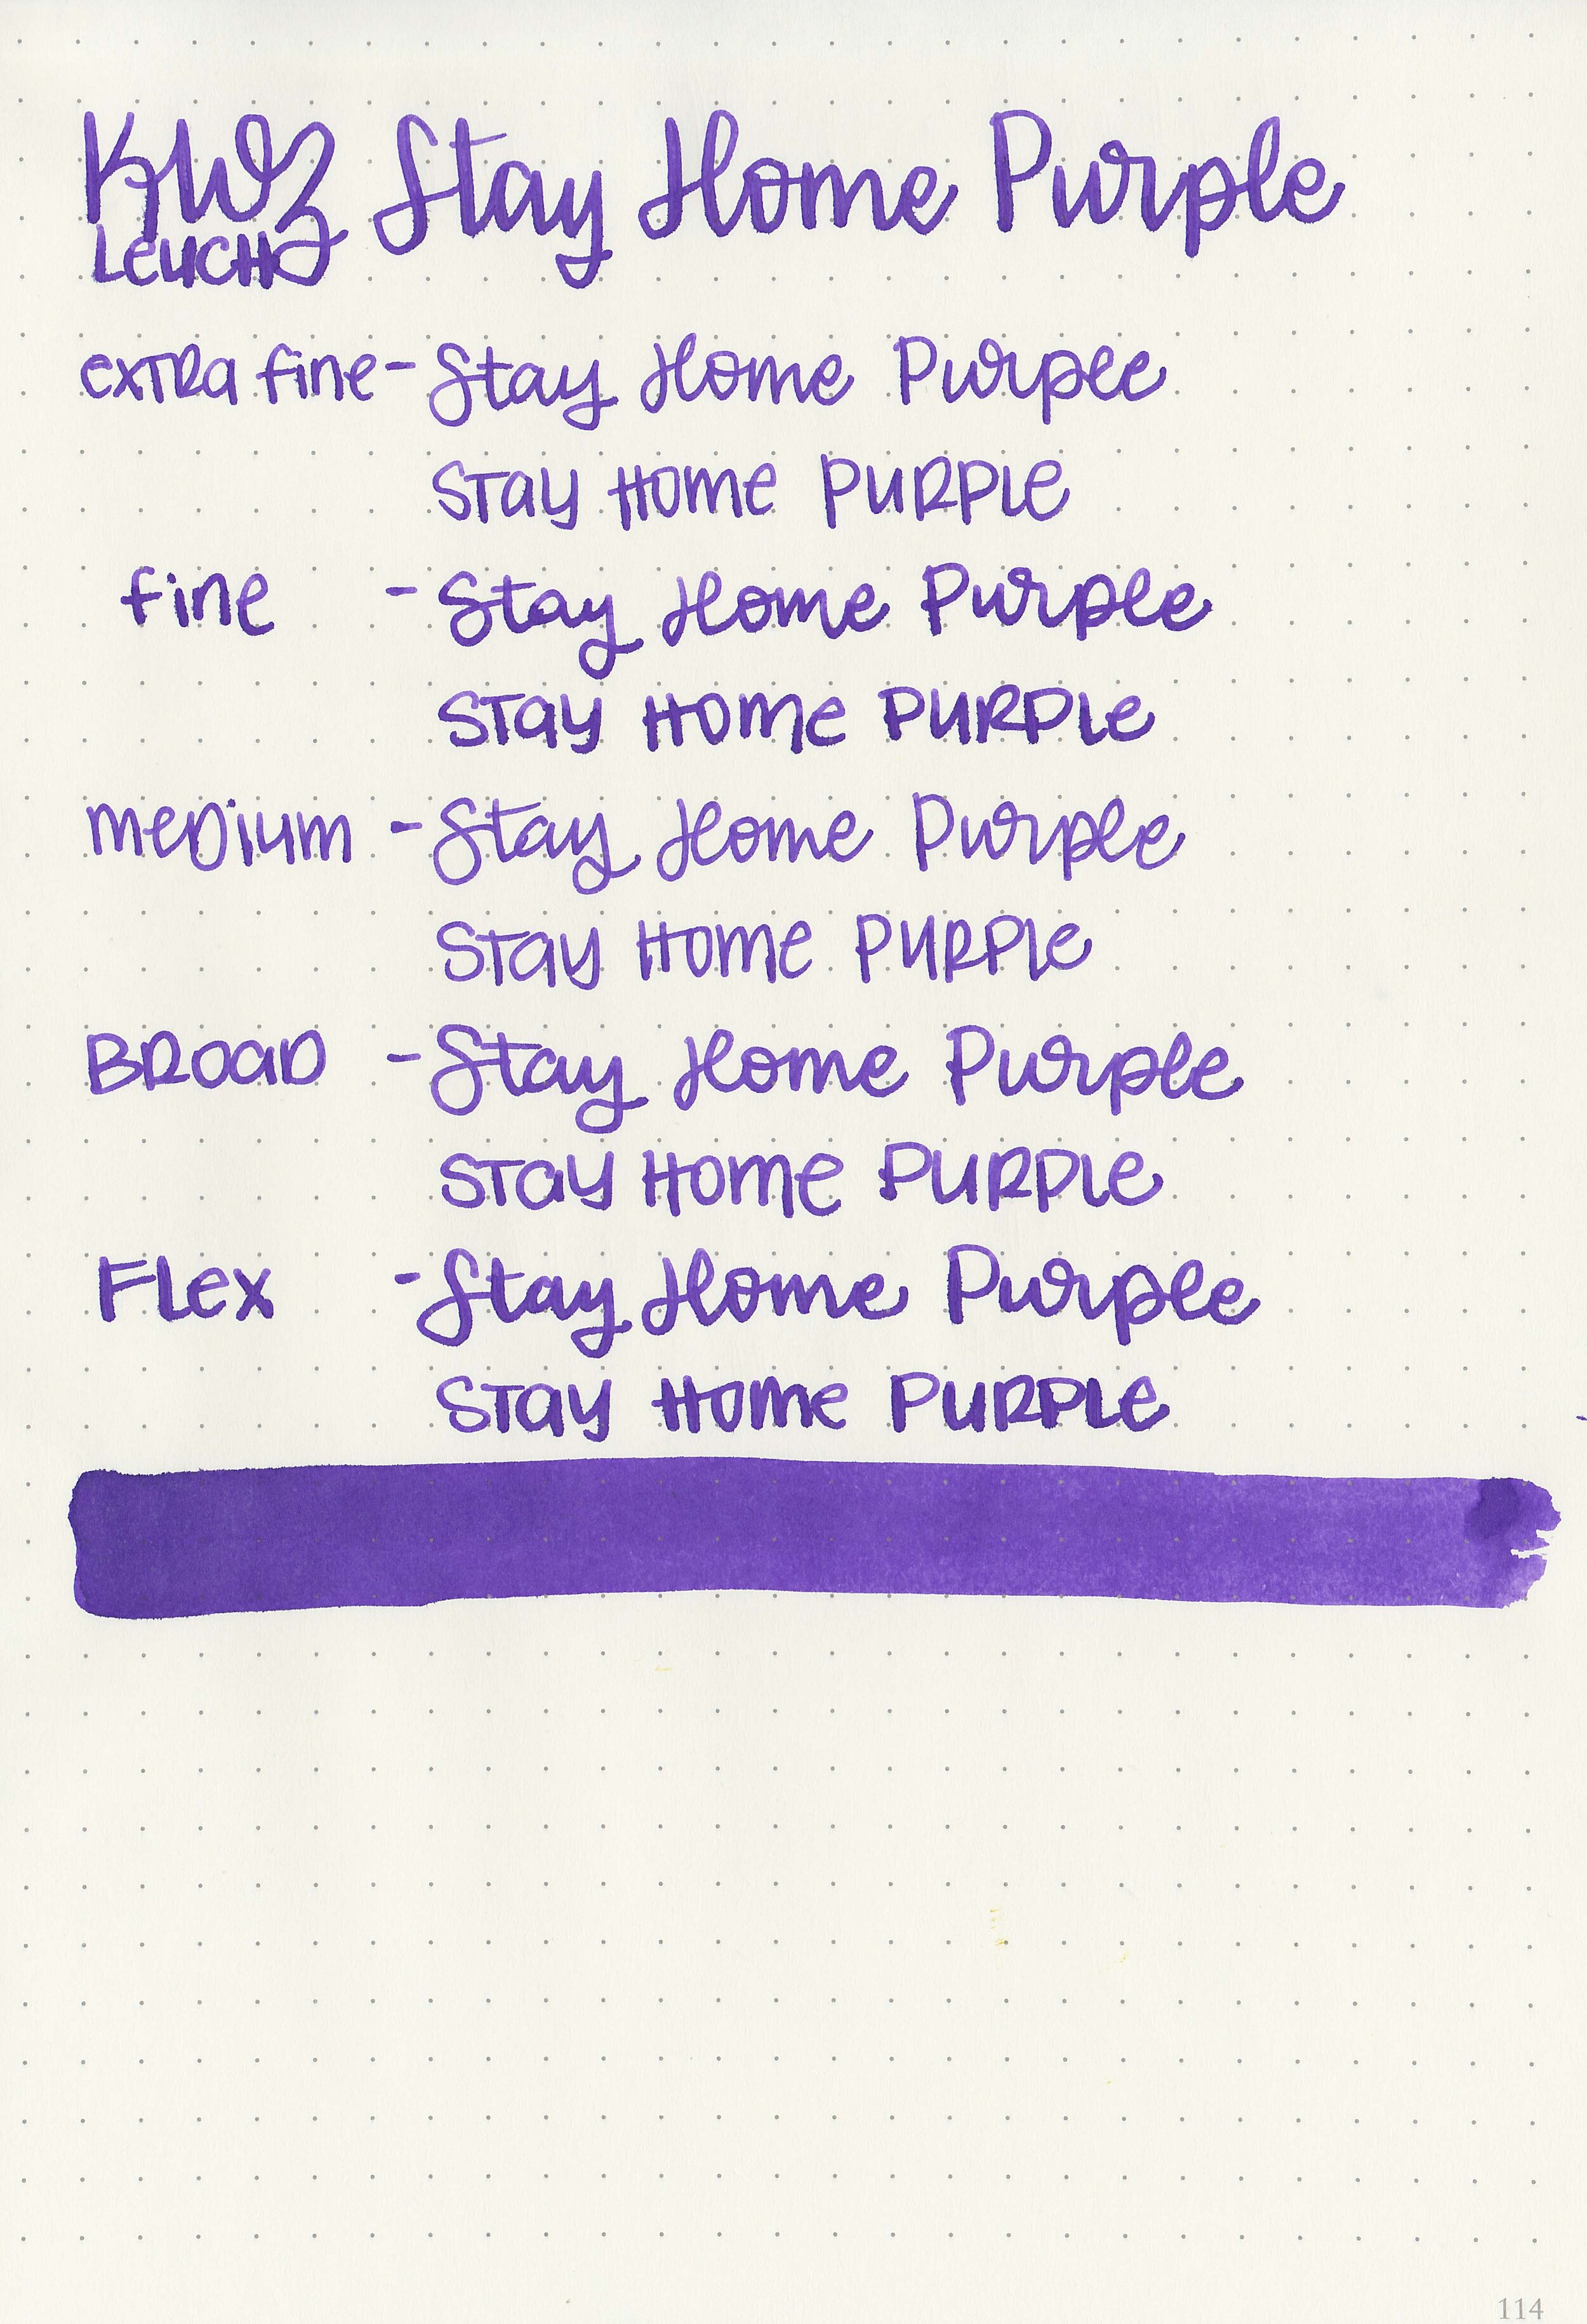 KWZ Stay Home Purple
Leuch
extra fine - Stay Home Purple
Stay Home Purple
fine - Stay Home Purple
Stay Home Purple
medium - Stay Home Purple
Stay Home Purple
Broad - Stay Home Purple
Stay Home Purple
Flex - Stay Home Purple
Stay Home Purple
114